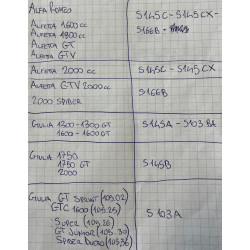 ALFA ROMEO
ALFETTA 1600 cc S145C - S145CX -
ALFETTA 1800 cc S166B -
ALFETTA GT
ALFETTA GTV
ALFETTA 2000 cc S145C - S145CX
ALFETTA GTV 2000 cc S166B
2000 SPIDER
GIULIA 1300 - 1300 GT S145A - S103BA
1600 - 1600 GT
GIULIA 1750 S145B
1750 GT
2000
GIULIA GT SPRINT (105.02) S103A
GTC 1600 (105.25)
SUPER (105.26)
GT JUNIOR (105.30)
SPIDER DUETTO (105.36)